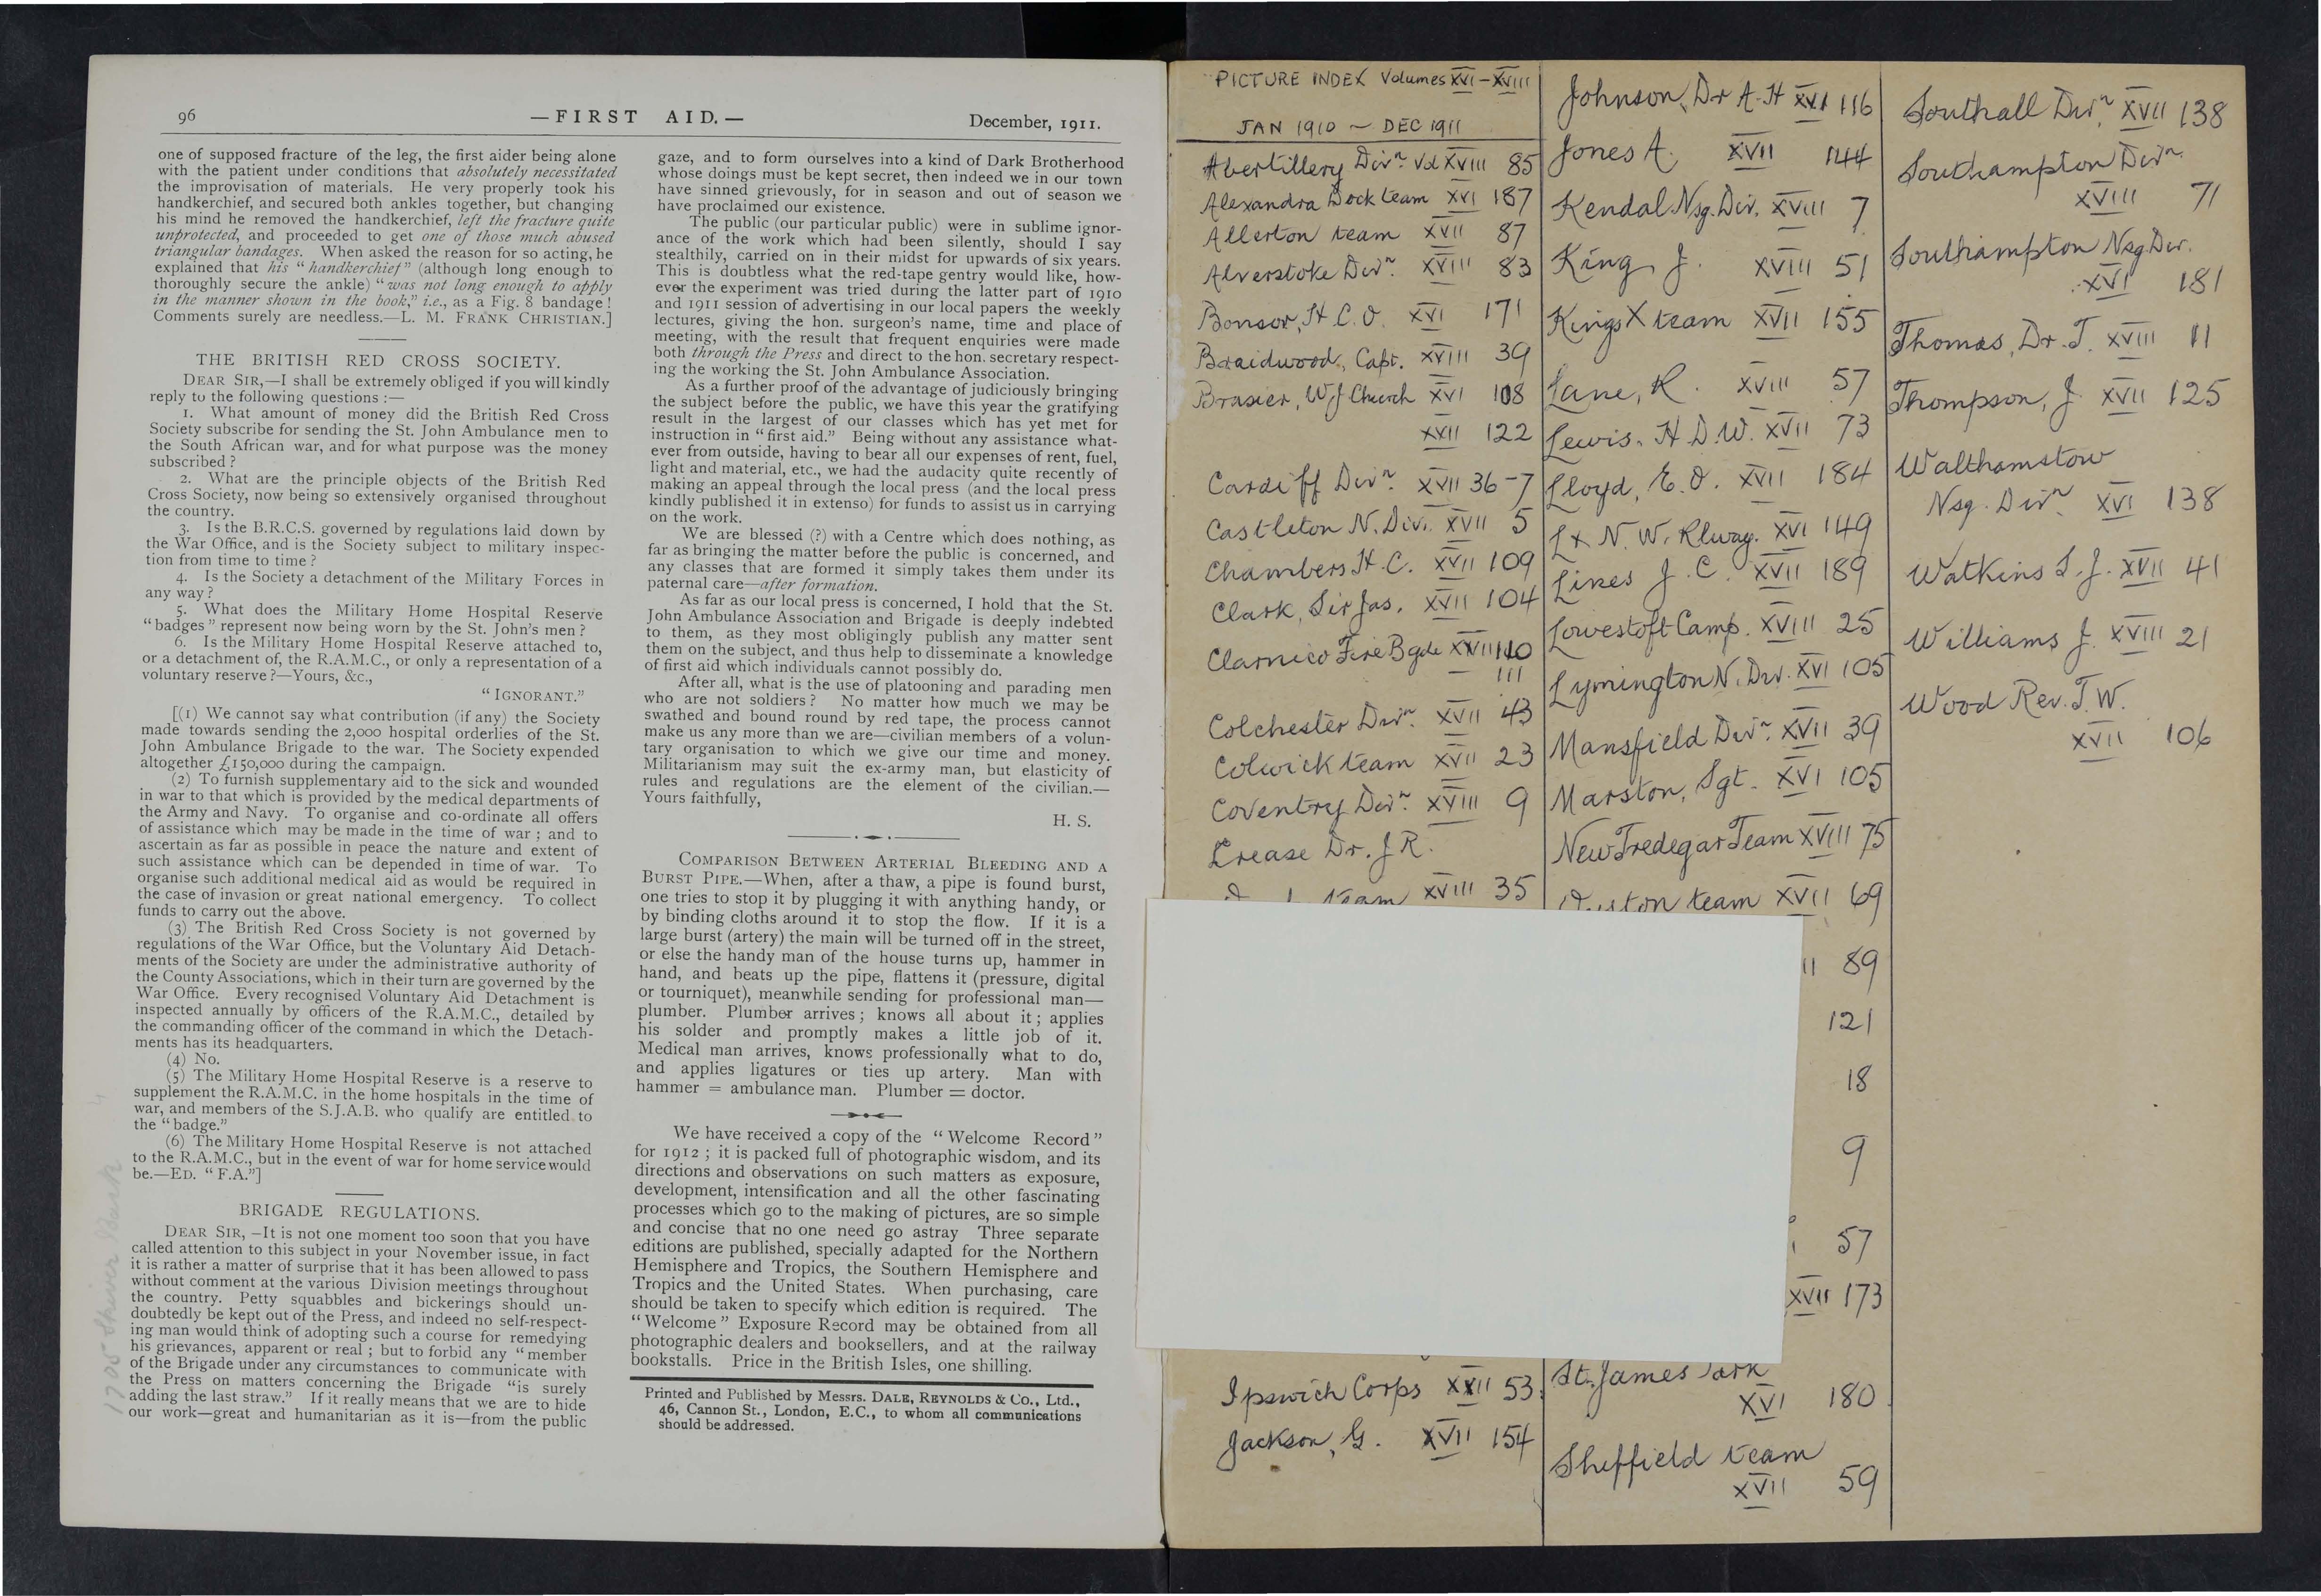 96
— FIRST AID. —
December, 1911.
one of supposed fracture of the leg, the first aider being alone
with the patient under conditions that absolutely necessitated
the improvisation of materials. He very properly took his
handkerchief, and secured both ankles together, but changing
his mind he removed the handkerchief, left the fracture quite
unprotected, and proceeded to get one of those much abused
triangular bandages. When asked the reason for so acting, he
explained that his "handkerchief" (although long enough to
thoroughly secure the ankle) "was not long enough to apply
in the manner shown in the book," i.e., as a Fig. 8 bandage!
Comments surely are needless.—L. M. FRANK CHRISTIAN.]
THE BRITISH RED CROSS SOCIETY.
DEAR SIR,—I shall be extremely obliged if you will kindly
reply to the following questions :—
1. What amount of money did the British Red Cross
Society subscribe for sending the St. John Ambulance men to
the South African war, and for what purpose was the money
subscribed?
2. What are the principle objects of the British Red
Cross Society, now being so extensively organised throughout
the country.
3. Is the B.R.C.S. governed by regulations laid down by
the War Office, and is the Society subject to military inspec-
tion from time to time?
4. Is the Society a detachment of the Military Forces in
any way?
5. What does the Military Home Hospital Reserve
"badges" represent now being worn by the St. John's men?
6. Is the Military Home Hospital Reserve attached to,
or a detachment of, the R.A.M.C., or only a representation of a
voluntary reserve?—Yours, &c.,
"IGNORANT."
[(1) We cannot say what contribution (if any) the Society
made towards sending the 2,000 hospital orderlies of the St.
John Ambulance Brigade to the war. The Society expended
altogether £150,000 during the campaign.
(2) To furnish supplementary aid to the sick and wounded
in war to that which is provided by the medical departments of
the Army and Navy. To organise and co-ordinate all offers
of assistance which may be made in the time of war; and to
ascertain as far as possible in peace the nature and extent of
such assistance which can be depended in time of war. To
organise such additional medical aid as would be required in
the case of invasion or great national emergency. To collect
funds to carry out the above.
(3) The British Red Cross Society is not governed by
regulations of the War Office, but the Voluntary Aid Detach-
ments of the Society are under the administrative authority of
the County Associations, which in their turn are governed by the
War Office. Every recognised Voluntary Aid Detachment is
inspected annually by officers of the R.A.M.C., detailed by
the commanding officer of the command in which the Detach-
ments has its headquarters.
(4) No.
(5) The Military Home Hospital Reserve is a reserve to
supplement the R.A.M.C. in the home hospitals in the time of
war, and members of the S.J.A.B. who qualify are entitled to
the "badge."
(6) The Military Home Hospital Reserve is not attached
to the R.A.M.C., but in the event of war for home service would
be.—ED. "F.A."]
BRIGADE REGULATIONS.
DEAR SIR,—It is not one moment too soon that you have
called attention to this subject in your November issue, in fact
it is rather a matter of surprise that it has been allowed to pass
without comment at the various Division meetings throughout
the country. Petty squabbles and bickerings should un-
doubtedly be kept out of the Press, and indeed no self-respect-
ing man would think of adopting such a course for remedying
his grievances, apparent or real; but to forbid any "member
of the Brigade under any circumstances to communicate with
the Press on matters concerning the Brigade "is surely
adding the last straw." If it really means that we are to hide
our work—great and humanitarian as it is—from the public
gaze, and to form ourselves into a kind of Dark Brotherhood
whose doings must be kept secret, then indeed we in our town
have sinned grievously, for in season and out of season we
have proclaimed our existence.
The public (our particular public) were in sublime ignor-
ance of the work which had been silently, should I say
stealthily, carried on in their midst for upwards of six years.
This is doubtless what the red-tape gentry would like, how-
ever the experiment was tried during the latter part of 1910
and 1911 session of advertising in our local papers the weekly
lectures, giving the hon. surgeon's name, time and place of
meeting, with the result that frequent enquiries were made
both through the Press and direct to the hon. secretary respect-
ing the working the St. John Ambulance Association.
As a further proof of the advantage of judiciously bringing
the subject before the public, we have this year the gratifying
result in the largest of our classes which has yet met for
instruction in "first aid." Being without any assistance what-
ever from outside, having to bear all our expenses of rent, fuel,
light and material, etc., we had the audacity quite recently of
making an appeal through the local press (and the local press
kindly published it in extenso) for funds to assist us in carrying
on the work.
We are blessed (?) with a Centre which does nothing, as
far as bringing the matter before the public is concerned, and
any classes that are formed it simply takes them under its
paternal care—after formation.
As far as our local press is concerned, I hold that the St.
John Ambulance Association and Brigade is deeply indebted
to them, as they most obligingly publish any matter sent
them on the subject, and thus help to disseminate a knowledge
of first aid which individuals cannot possibly do.
After all, what is the use of platooning and parading men
who are not soldiers? No matter how much we may be
swathed and bound round by red tape, the process cannot
make us any more than we are—civilian members of a volun-
tary organisation to which we give our time and money.
Militarianism may suit the ex-army man, but elasticity of
rules and regulations are the element of the civilian.—
Yours faithfully,
H. S.
COMPARISON BETWEEN ARTERIAL BLEEDING AND A
BURST PIPE.—When, after a thaw, a pipe is found burst,
one tries to stop it by plugging it with anything handy, or
by binding cloths around it to stop the flow. If it is a
large burst (artery) the main will be turned off in the street,
or else the handy man of the house turns up, hammer in
hand, and beats up the pipe, flattens it (pressure, digital
or tourniquet), meanwhile sending for professional man—
plumber. Plumber arrives; knows all about it; applies
his solder and promptly makes a little job of it.
Medical man arrives, knows professionally what to do,
and applies ligatures or ties up artery. Man with
hammer = ambulance man. Plumber = doctor.
We have received a copy of the "Welcome Record"
for 1912; it is packed full of photographic wisdom, and its
directions and observations on such matters as exposure,
development, intensification and all the other fascinating
processes which go to the making of pictures, are so simple
and concise that no one need go astray Three separate
editions are published, specially adapted for the Northern
Hemisphere and Tropics, the Southern Hemisphere and
Tropics and the United States. When purchasing, care
should be taken to specify which edition is required. The
"Welcome" Exposure Record may be obtained from all
photographic dealers and booksellers, and at the railway
bookstalls. Price in the British Isles, one shilling.
Printed and Published by Messrs. DALE, REYNOLDS & Co., Ltd.,
46, Cannon St., London, E.C., to whom all communications
should be addressed.
PICTURE INDEX Volumes XVI - XVIII
JAN 1910 ~ DEC 1911
Abertillery Divn. Vol XVIII 85
Alexandra Dock team XVI 187
Allerton team XVII 87
Alverstoke Divn. XVIII 83
Bonsor, H. C. O. XVI 171
Braidwood, Capt. XVIII 39
Brasier, W J Church XVI 108
XXII 122
Cardiff Divn. XVII 36-7
Castleton N. Div. XVII 5
Chambers H. C. XVII 109
Clark, Sir Jas. XVII 104
Clarnico Fire Bgde XVII 110
111
Colchester Divn. XVII 43
Colwick team XVII 23
Coventry Divn. XVIII 9
Crease Dr. J R.
team XVIII 35
Ipswich Corps XXII 53
Jackson, G. XVII 154
Johnson, Dr A. H XVI 116
Jones A. XVII 144
Kendal Nsg. Div. XVIII 7
King J. XVIII 51
Kings X team XVII 155
Lane, R. XVIII 57
Lewis. H. D. W. XVII 73
Lloyd, E. O. XVII 184
L & N. W. Rlway. XVI 149
Lines J. C. XVII 189
Lowestoft Camp. XVIII 25
Lymington N. Div. XVI 105
Mansfield Divn. XVII 39
Marston, Sgt. XVI 105
New Tredegar Team XVIII 75
team XVII 69
89
121
18
9
57
XVII 173
St. James Park
XVI 180
Sheffield team
XVII 59
Southall Divn. XVII 138
Southampton Divn.
XVIII 71
Southampton Nsg Div.
XVI 181
Thomas, Dr. T. XVIII 11
Thompson, J. XVII 125
Walthamstow
Nsg. Divn XVI 138
Watkins S. J. XVII 41
Williams J. XVIII 21
Wood Rev. T. W.
XVII 106